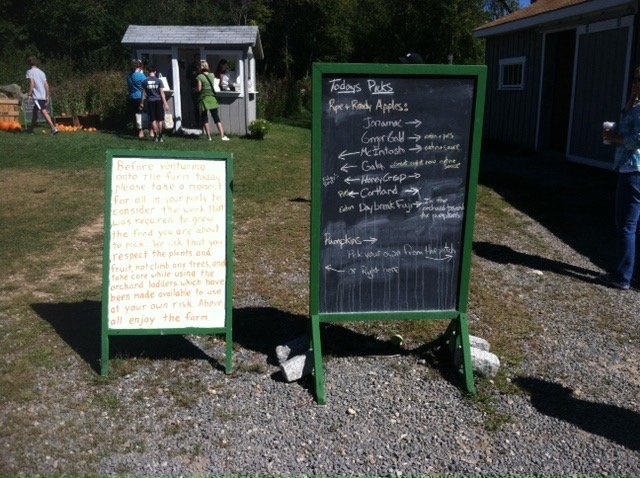 Before venturing
onto the farm today
please take a moment
for all in your party to
consider the work that
was required to grow
the food you are about
to pick. We ask that you
respect the plants and
fruit, not climb any trees, and
take care while using the
orchard ladders which have
been made available to use
at your own risk. Above
all enjoy the farm.
Todays Picks
Ripe + Ready Apples:
Jonamac →
Gingr Gold →
← McIntosh →
← Gala
← HoneyCrisp →
← Cortland →
Daybreak Fuji →
Pumpkins →
Pick your own from the patch
or Right here